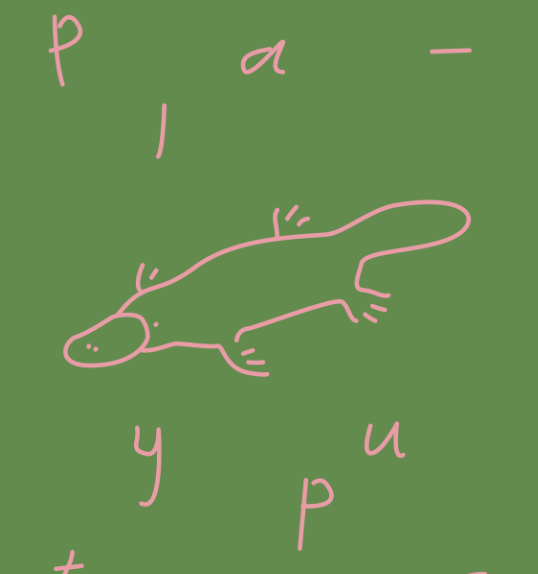 p a –
l
y u
p
t